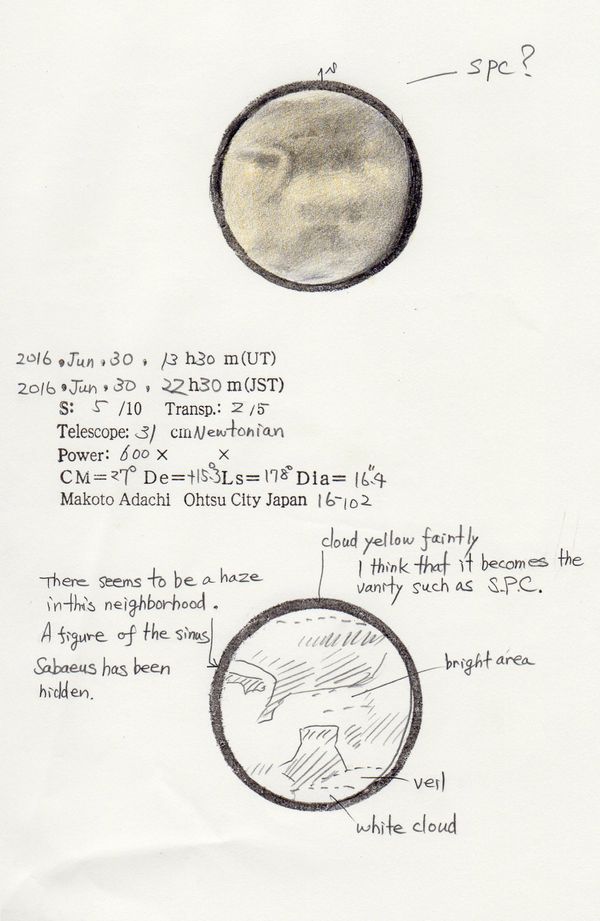 SPC?
2016, Jun, 30, 13 h30 m(UT)
2016, Jun, 30, 22 h30 m(JST)
S: 5 /10 Transp.: 2 /5
Telescope: 31 cm Newtonian
Power: 600 × ×
CM=27° De=+15.3° Ls=178° Dia= 16.4"
Makoto Adachi Ohtsu City Japan 16-102
cloud yellow faintly
I think that it becomes the
vanity such as S.P.C.
There seems to be a haze
in this neighborhood.
A figure of the sinus
Sabaeus has been
hidden.
bright area
veil
white cloud